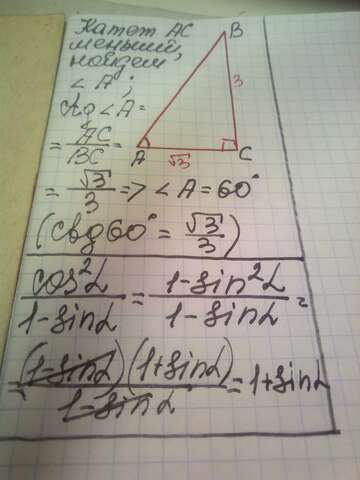 Катет AC
меньший,
найдем
∠A;
ctg∠A=
= AC/BC =
= √3/3 => ∠A = 60°
(ctg60° = √3/3)
B
3
A
√3
C
cos²α/(1-sinα) = (1-sin²α)/(1-sinα) =
= (1-sinα)(1+sinα)/(1-sinα) = 1+sinα